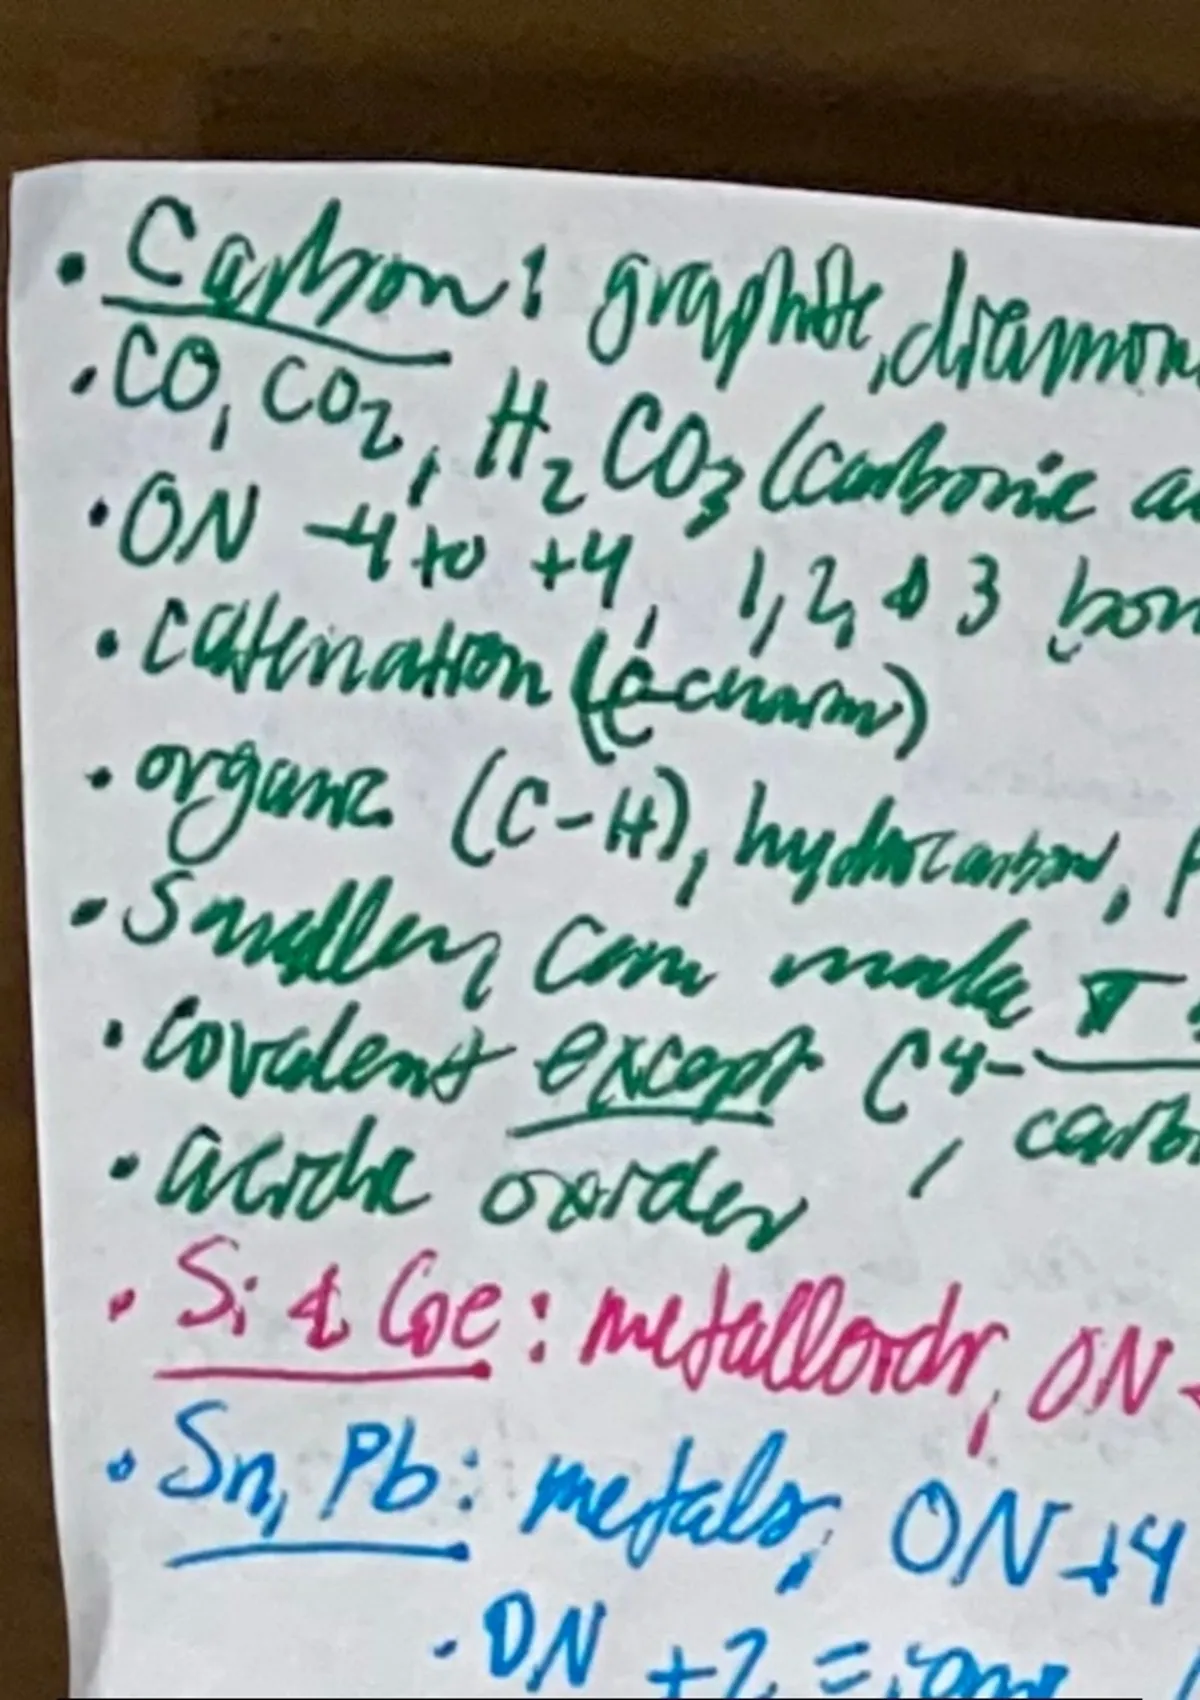 • Carbon: graphite, diamon
• CO, CO₂, H₂CO₃ (carbonic a
• ON -4 to +4, 1, 2, & 3 bon
• catenation (C-chain)
• organic (C-H), hydrocarbon,
• Smaller, can make π
• covalent except C⁴⁻, carb
• acidic oxides
• Si & Ge: metalloids, ON
• Sn, Pb: metals, ON +4
• ON +2 = ionic